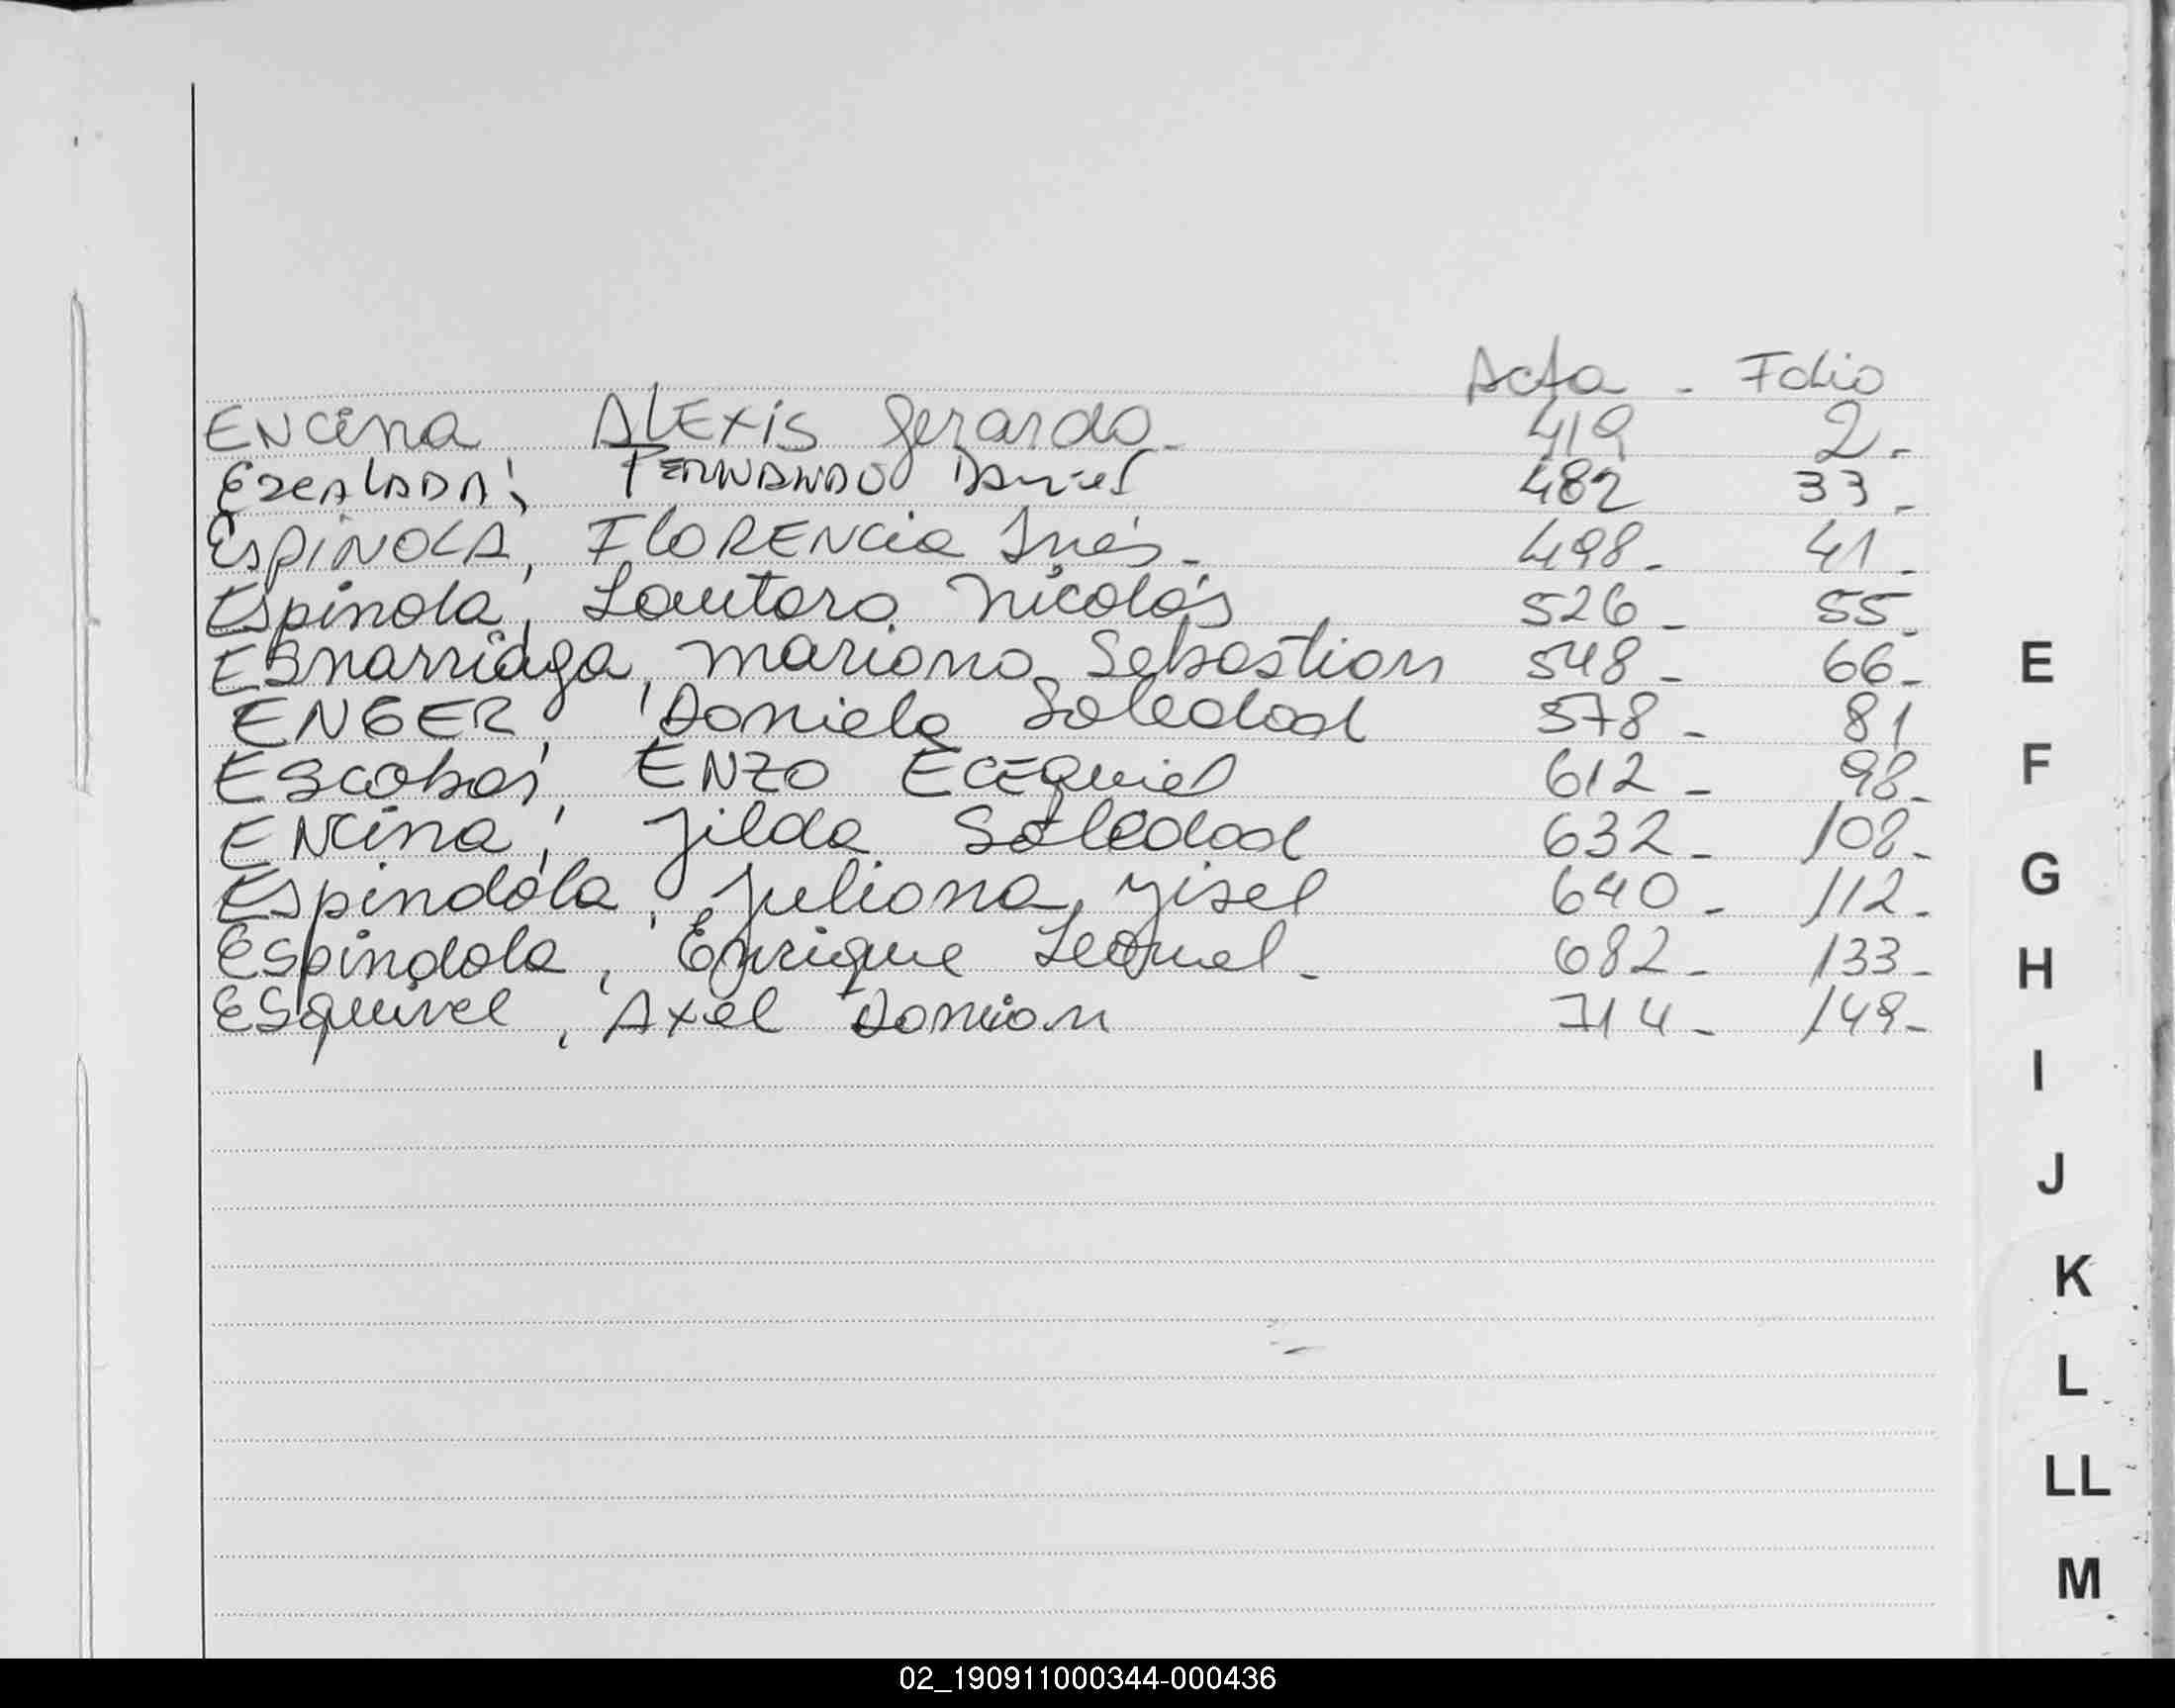 Acta - Folio
ENCina ALEXis Gerardo - 419 2 -
EZCALADA, FERNANDO Daniel 482 33 -
EsPINOLA, FloRENCia Inés - 498 - 41 -
Espinola, Lautaro Nicolás 526 - 55 -
Esnarriaga, Mariano Sebastian 548 - 66 -
ENGER, Daniela Soledad 578 - 81
Escobar, ENZO ECEQuiel 612 - 98 -
ENcina, Jilda Soledad 632 - 108 -
Espindola, Juliana Yisel 640 - 112 -
Espindola, Enrique Leonel - 682 - 133 -
Esquivel, Axel Damian 714 - 149 -
E
F
G
H
I
J
K
L
LL
M
02_190911000344-000436